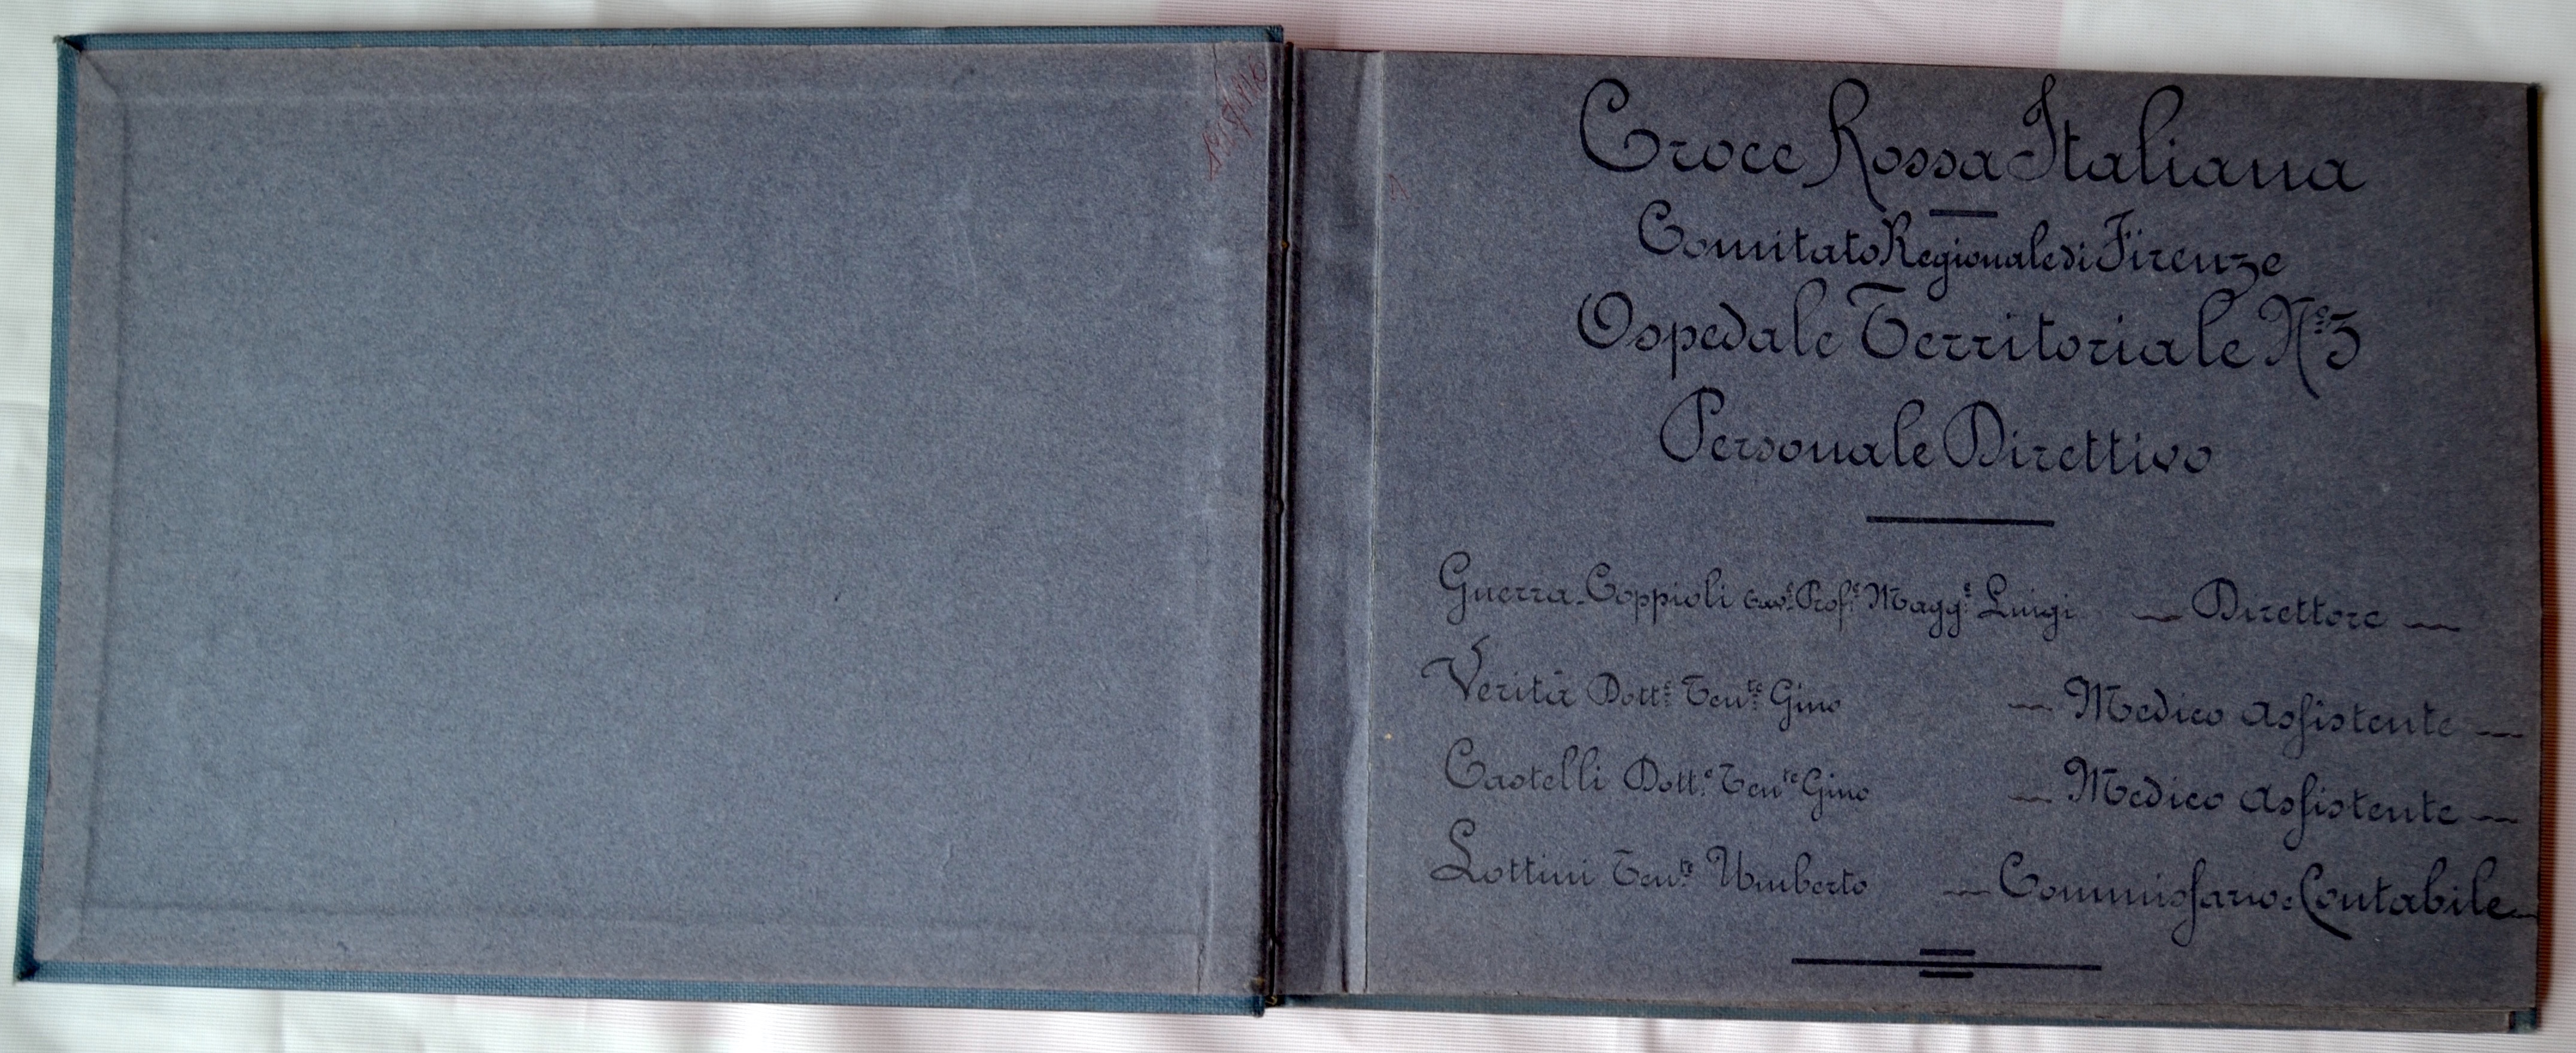 Croce Rossa Italiana
Comitato Regionale di Firenze
Ospedale Territoriale N.º 3
Personale Direttivo
Guerra-Coppioli Cav.e Prof.e Magg.e Luigi — Direttore —
Verità Dott.e Ten.te Gino — Medico Assistente —
Castelli Dott.e Ten.te Gino — Medico Assistente —
Lottini Ten.te Umberto — Commissario-Contabile —